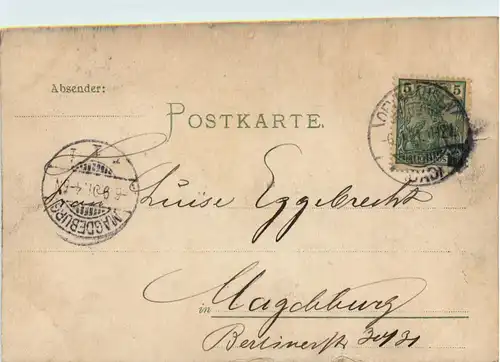 Absender:
5 5
POSTKARTE.
MAGDEBURG
Luise Eggebrecht
in Magdeburg
Berlinerstr 30/31